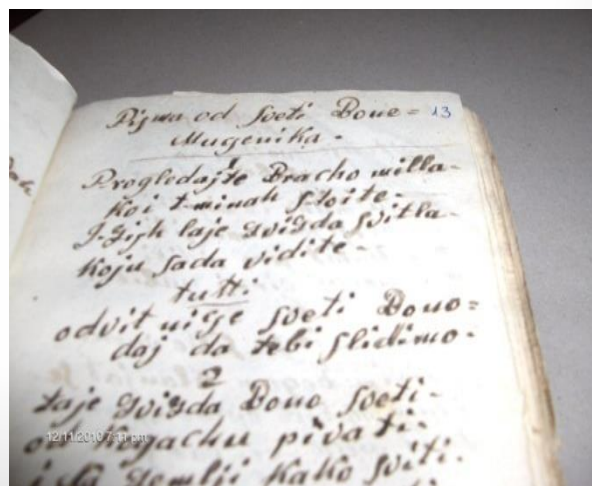 Pisma od sveti Bone= 13
Mugenika.
1
Progledajte Bracho milla-
Koi t-minah stoite-
I-zijh laje zvizda svitla-
Koju sada vidite-
tutti
odvitnisse sveti Bono=
daj da tebi slidimo-
2
taje zvizda Bone sveti-
12/11/2010 7:11 pm
pivati-
zemlji kako sviti.